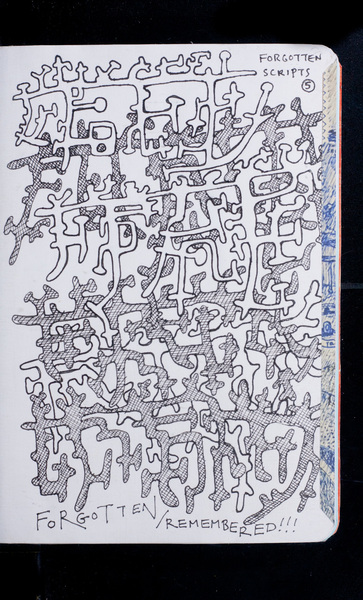 FORGOTTEN
SCRIPTS
5
FORGOTTEN/REMEMBERED!!!